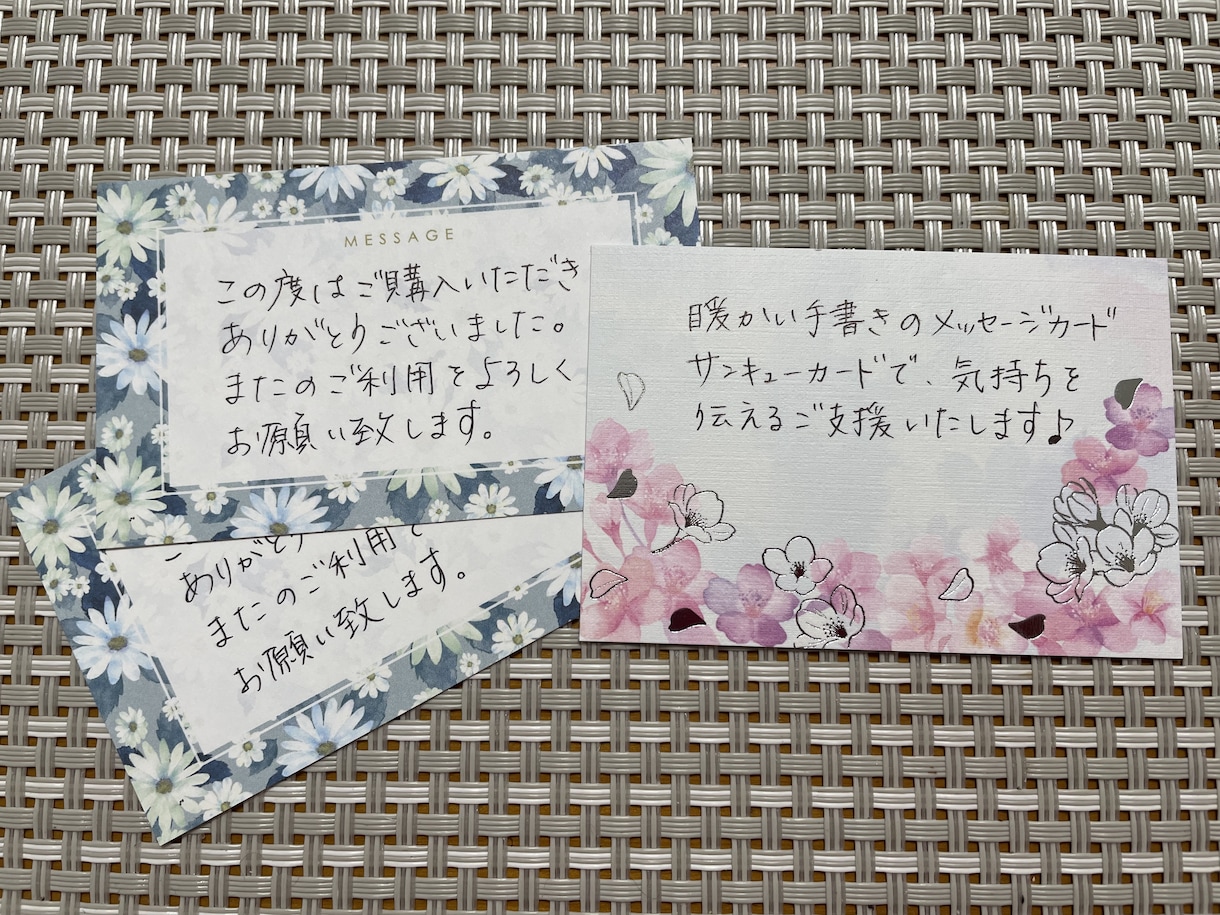 MESSAGE
この度はご購入いただき
ありがとうございました。
またのご利用をよろしく
お願い致します。
ありがとう
またのご利用を
お願い致します。
暖かい手書きのメッセージカード
サンキューカードで、気持ちを
伝えるご支援いたします♪